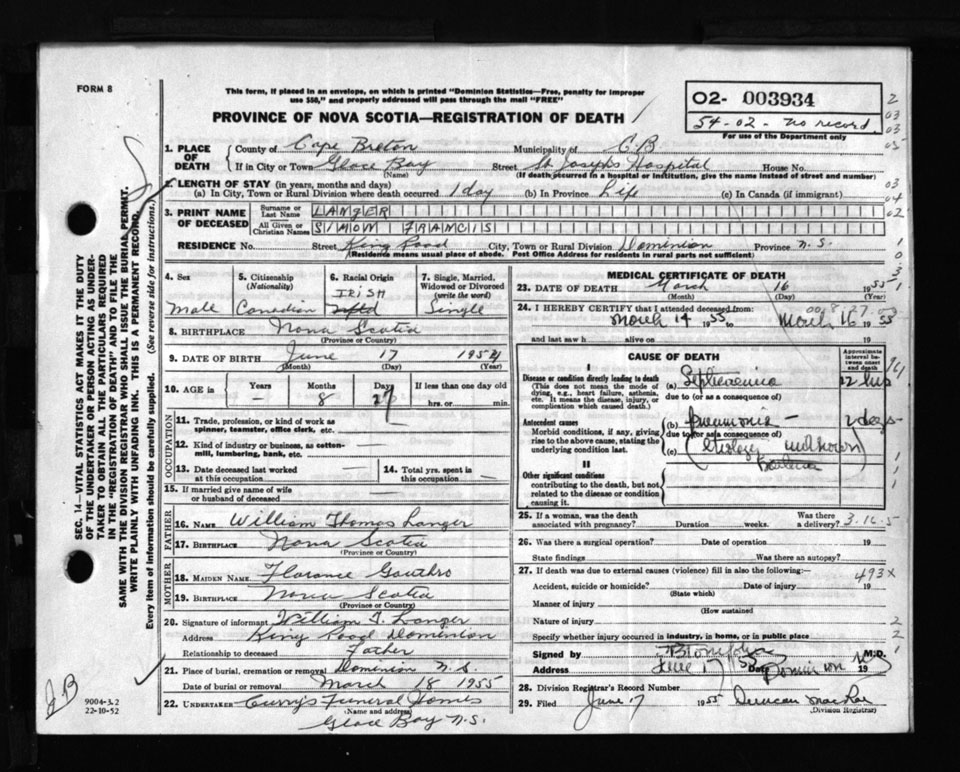 FORM 8
This form, if placed in an envelope, on which is printed "Dominion Statistics—Free, penalty for improper
use $50," and properly addressed will pass through the mail "FREE"
PROVINCE OF NOVA SCOTIA—REGISTRATION OF DEATH
02- 003934
54-02- no record
For use of the Department only
1. PLACE OF DEATH
County of Cape Breton Municipality of C.B.
If in City or Town Glace Bay Street St. Josephs Hospital House No.
(Name) (If death occurred in a hospital or institution, give the name instead of street and number)
2. LENGTH OF STAY (in years, months and days)
(a) In City, Town or Rural Division where death occurred 1 day (b) In Province Life (c) In Canada (if immigrant)
3. PRINT NAME OF DECEASED
Surname or Last Name LANGER
All Given or Christian Names SIMON FRANCIS
RESIDENCE No. Street King Road City, Town or Rural Division Dominion Province N.S.
(Residence means usual place of abode. Post Office Address for residents in rural parts not sufficient)
4. Sex
Male
5. Citizenship
(Nationality)
Canadian
6. Racial Origin
IRISH
7. Single, Married,
Widowed or Divorced
(write the word)
Single
8. BIRTHPLACE Nova Scotia
(Province or Country)
9. DATE OF BIRTH June 17 1954
(Month) (Day) (Year)
10. AGE in
Years Months Days If less than one day old
— 8 27 hrs. or min.
OCCUPATION
11. Trade, profession, or kind of work as
spinner, teamster, office clerk, etc. —
12. Kind of industry or business, as cotton-
mill, lumbering, bank, etc. —
13. Date deceased last worked
at this occupation —
14. Total yrs. spent in
this occupation —
15. If married give name of wife
or husband of deceased —
FATHER
16. NAME William Thomas Langer
17. BIRTHPLACE Nova Scotia
(Province or Country)
MOTHER
18. MAIDEN NAME Florance Gouthro
19. BIRTHPLACE Nova Scotia
(Province or Country)
20. Signature of informant William T. Langer
Address King Road Dominion
Relationship to deceased Father
21. Place of burial, cremation or removal Dominion N.S.
Date of burial or removal March 18 1955
22. UNDERTAKER Curry's Funeral Homes
(Name and address)
Glace Bay N.S.
MEDICAL CERTIFICATE OF DEATH
23. DATE OF DEATH March 16 1955
(Month) (Day) (Year)
24. I HEREBY CERTIFY that I attended deceased from:
March 14 1955 to March 16 1955
and last saw h alive on 19
CAUSE OF DEATH
Approximate interval between onset and death
I
Disease or condition directly leading to death
(This does not mean the mode of
dying, e.g., heart failure, asthenia,
etc. It means the disease, injury, or
complication which caused death.)
(a) Septicemia 12 hrs
due to (or as a consequence of)
Antecedent causes
Morbid conditions, if any, giving
rise to the above cause, stating the
underlying condition last.
(b) pneumonia — 2 days
due to (or as a consequence of)
(c) etiology unknown
II
Other significant conditions
contributing to the death, but not
related to the disease or condition
causing it.
25. If a woman, was the death
associated with pregnancy? Duration weeks. Was there
a delivery?
3.16.5
26. Was there a surgical operation? Date of operation 19
State findings Was there an autopsy?
27. If death was due to external causes (violence) fill in also the following:—
493X
Accident, suicide or homicide? Date of injury 19
(State which)
Manner of injury
(How sustained
Nature of injury
Specify whether injury occurred in industry, in home, or in public place
Signed by M.D.
Address June 17 Date Dominion 19
28. Division Registrar's Record Number
29. Filed June 17 1955 Duncan MacRae
(Division Registrar)
SEC. 14—VITAL STATISTICS ACT MAKES IT THE DUTY
OF THE UNDERTAKER OR PERSON ACTING AS UNDER-
TAKER TO OBTAIN ALL THE PARTICULARS REQUIRED
IN THE "REGISTRATION OF DEATH" AND TO FILE THE
SAME WITH THE DIVISION REGISTRAR WHO SHALL ISSUE THE BURIAL PERMIT.
WRITE PLAINLY WITH UNFADING INK. THIS IS A PERMANENT RECORD.
Every item of information should be carefully supplied. (See reverse side for instructions.)
9004-3.2
22-10-52